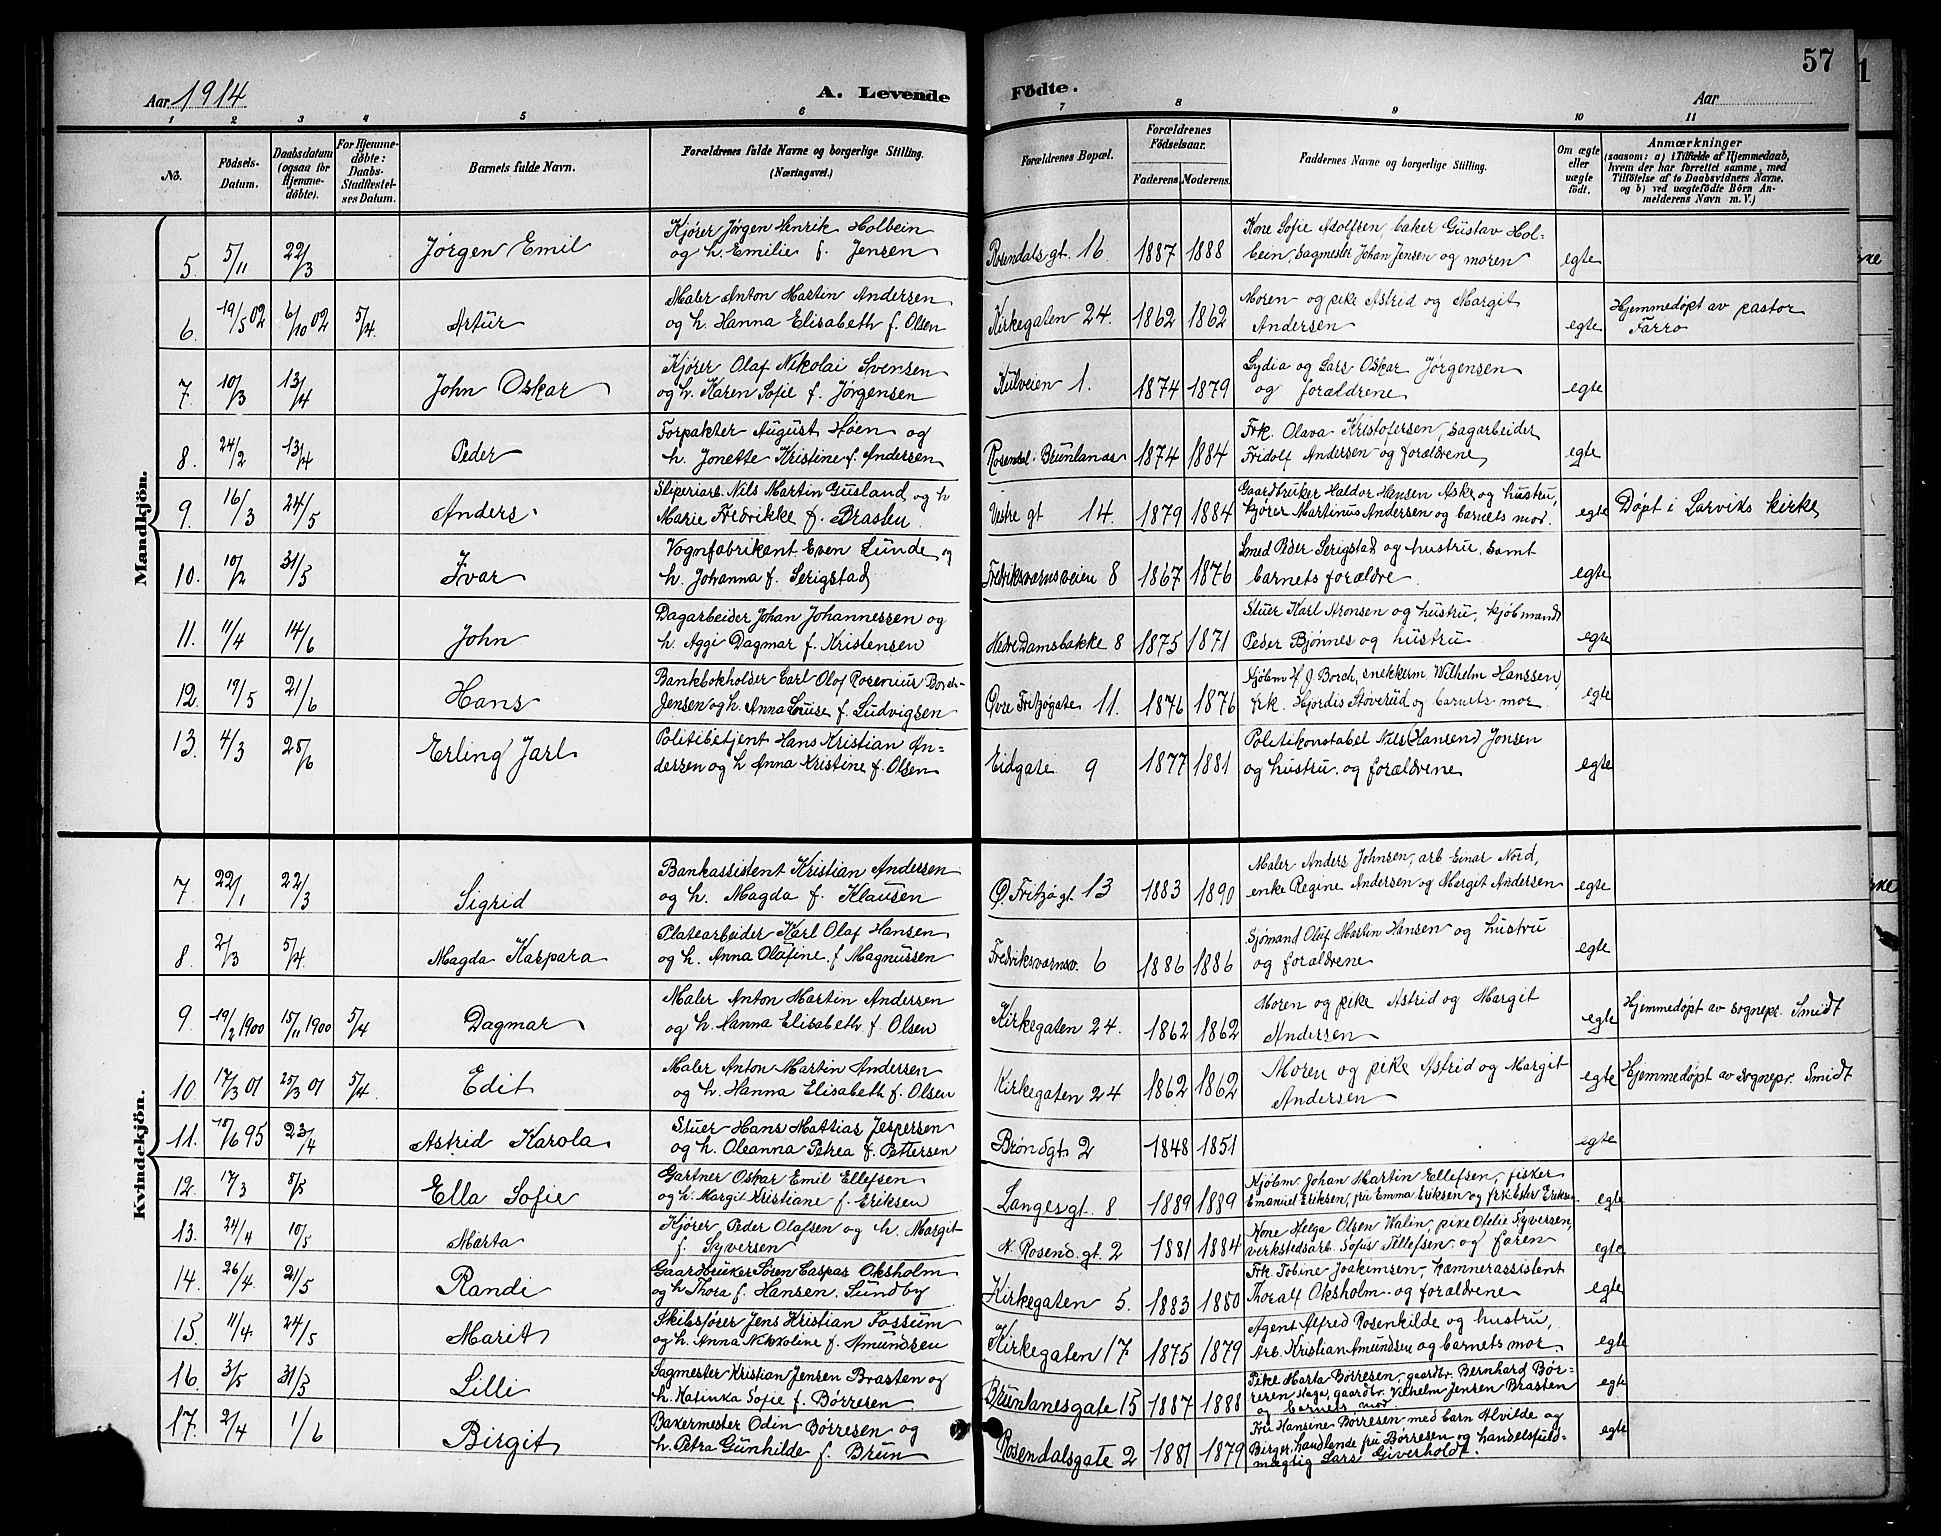 Aar 1914
A. Levende
Födte.
57
Aar
1 2 3 4 5 6 7 8 9 10 11
No.
Födsels-Datum.
Daabsdatum (ogsaa for Hjemme-döbte).
For Hjemme-döbte: Daabs-Stadfæstel-ses Datum.
Barnets fulde Navn.
Forældrenes fulde Navne og borgerlige Stilling. (Næringsvei.)
Forældrenes Bopæl.
Forældrenes Födselsaar.
Faderens. Moderens.
Faddernes Navne og borgerlige Stilling.
Om ægte eller uægte födt.
Anmærkninger
(saasom: a) i Tilfælde af Hjemmedaab, hvem der har forrettet samme, med Tilföielse af to Daabsvidners Navne, og b) ved uægtefödte Börn An-melderens Navn m. V.)
Mandkjön.
5. 5/11 22/3 Jørgen Emil
Kjører Jørgen Henrik Holbein
og h. Emilie f. Jensen
Rosendalsgt. 16 1887 1888
Kone Sofie Adolfsen, baker Gustav Hol-
bein, sagmester Johan Jensen og moren
egte
6. 19/5 02 6/10 02 5/4 Artur
Maler Anton Martin Andersen
og h. Hanna Elisabeth f. Olsen
Kirkegaten 24. 1862 1862
Moren og pike Astrid og Margit
Andersen
egte
Hjemmedøpt av pastor
Farro
7. 10/3 13/4 John Oskar
Kjører Olaf Nikolai Svensen
og h. Karen Sofie f. Jørgensen
Kulveien 1. 1874 1879
Lydia og Lars Oskar Jørgensen
og forældrene
egte
8. 24/2 13/4 Peder
Forpakter August Høen og
h. Jonette Kristine f. Andersen
Rosendal. Brunlanæs 1874 1884
Frk. Olava Kristofersen, sagarbeider
Fridolf Andersen og forældrene
egte
9. 16/3 24/5 Anders
Sliperiarb. Nils Martin Gusland og h
Marie Fredrikke f. Braslen
Vestre gt 14. 1879 1884
Gaardbruker Haldor Hansen Aske og hustru,
kjører Martinus Andersen og barnets mor.
egte
Døpt i Larviks kirke
10. 10/2 31/5 Ivar
Vognfabrikant Even Lunde og
h. Johanna f. Serigstad
Fredriksværnsveien 8 1867 1876
Smed Peder Serigstad og hustru samt
barnets forældre
egte
11. 11/4 14/6 John
Dagarbeider Johan Johannessen og
h. Aggi Dagmar f. Kristensen
Nedre Damsbakke 8 1875 1871
Stuer Karl Aronsen og hustru, kjøbmand
Peder Bjønnes og hustru
egte
12. 19/5 21/6 Hans
Bankbokholder Carl Olof Rosenius Borch-
Jensen og h. Anna Louise f. Ludvigsen
Øvre Fritzøgate 11. 1876 1876
Kjøbm H. J. Borch, snekkerm Wilhelm Hanssen,
frk. Hjørdis Støverud og barnets mor
egte
13. 4/3 28/6 Erling Jarl
Politibetjent Hans Kristian An-
dersen og h Anna Kristine f. Olsen
Eidgate 9 1877 1881
Politikonstabel Nils (Hansen) Jonsen
og hustru og forældrene
egte
Kvindekjön.
7. 22/1 22/3 Sigrid
Bankassistent Kristian Andersen
og h. Magda f. Klausen
Ø. Fritzøgt. 13 1883 1890
Maler Anders Johnsen, arb Einar Nord,
enke Regine Andersen og Margit Andersen
egte
8. 2/3 5/4 Magda Kaspara
Platearbeider Karl Olaf Hansen
og h. Anna Olafine f Magnussen
Fredriksværnsv. 6 1886 1886
Sjømand Oluf Martin Hansen og hustru
og forældrene
egte
9. 19/2 1900 15/11 1900 5/4 Dagmar
Maler Anton Martin Andersen
og h. Hanna Elisabeth f. Olsen
Kirkegaten 24. 1862 1862
Moren og pike Astrid og Margit
Andersen
egte
Hjemmedøpt av sognepr. Smidt
10. 17/3 01 25/3 01 5/4 Edit
Maler Anton Martin Andersen
og h. Hanna Elisabeth f. Olsen
Kirkegaten 24 1862 1862
Moren og pike Astrid og Margit
Andersen
egte
Hjemmedøpt av sognepr. Smidt
11. /6 95 23/4 Astrid Karola
Stuer Hans Mattias Jespersen
og h. Oleanna Petrea f. Pettersen
Brøndgt. 2 1848 1851
egte
12. 17/3 8/5 Ella Sofie
Gartner Oskar Emil Ellefsen
og h. Margit Kristiane f. Eriksen
Langesgt. 8 1889 1889
Kjøbm Johan Martin Ellefsen, fisker
Emanuel Eriksen, fru Emma Eriksen og frk Ester Eriksen
egte
13. 24/4 10/5 Marta
Kjører Peder Olafsen og h. Margit
f. Syversen
N. Rosend. gt. 2 1881 1884
Kone Helga Olsen Walin, pike Otelie Syversen,
verkstedsarb. Sofus Tellefsen og faren
egte
14. 26/4. 21/5 Randi
Gaardbruker Søren Caspar Oksholm
og h Thora f. Hansen Sundby
Kirkegaten 5. 1883 1880
Frk. Tobine Joakimsen, kæmnerassistent
Thoralf Oksholm og forældrene
egte
15. 11/4 24/5 Marit
Skibsfører Jens Kristian Fossum
og h. Anna Nikoline f. Amundsen
Kirkegaten 17 1875 1879
Agent Alfred Rosenkilde og hustru,
Arb. Kristian Amundsen og barnets mor
egte
16. 3/5 31/5 Lilli
Sagmester Kristian Jensen Brasten og
h. Katinka Sofie f. Børresen
Brunlanesgate 15 1887 1888
Pike Marta Børresen, gaardbr. Bernhard Bør-
resen Hage, gaardbr. Vilhelm Jensen Brasten
og barnets mor
egte
17. 2/4 1/6 Birgit
Bakermester Odin Børresen og
h. Petra Gunhilde f. Brun
Rosendalsgate 2 1881 1879
Fru Hansine Børresen med barn Alvilde og
Birger, handlende fru Børresen og handelsfuld-
mægtig Lars Giverholdt.
egte